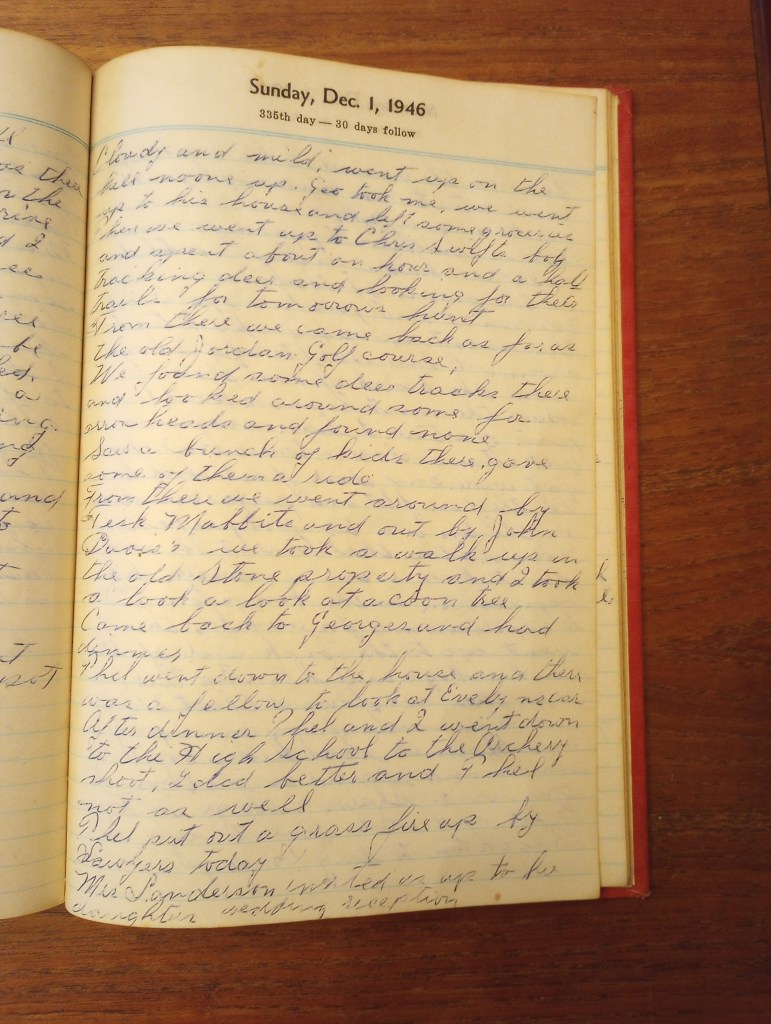 Sunday, Dec. 1, 1946
335th day — 30 days follow
Cloudy and mild, went up on the
hill noone up. Geo took me, we went
up to his house and left some groceries
then we went up to Chas Swifts
and spent about an hour and a half
tracking deer and looking for their
trails for tomorrows hunt
From there we came back as far as
the old Jordan Golf course,
We found some deer tracks there
and looked around some for
arrow heads and found none
Saw a bunch of kids there, gave
some of them a ride
From there we went around by
Mabbits and out by John
Davis's we took a walk up in
the old Stone property and I took
a look a look at a coon tree
Came back to Georges and had
dinner
Phel went down to the house and there
was a fellow to look at Evelyns car
After dinner Phel and I went down
to the High School to the Archery
shoot, I did better and Phel
not as well
Phel put out a grass fire up by
Sawyers today
Mrs Sanderson invited us up to her
daughters wedding reception